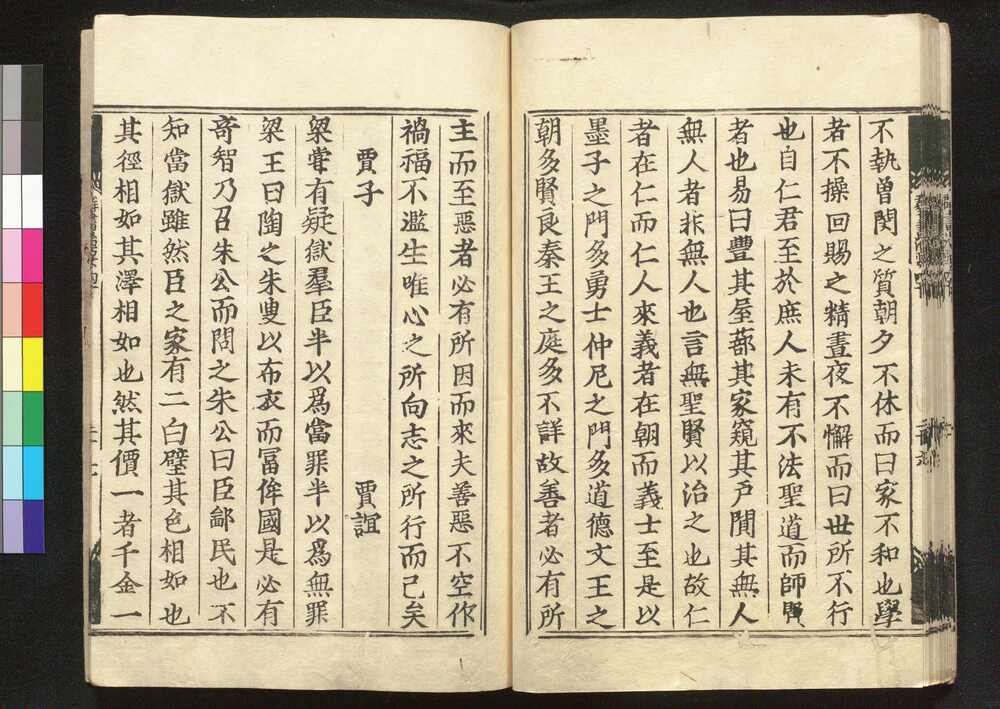 不執曾閔之質朝夕不休而曰家不和也學
者不操回賜之精晝夜不懈而曰世所不行
也自仁君至於庶人未有不法聖道而師賢
者也易曰豐其屋蔀其家窺其戶閴其無人
無人者非無人也言無聖賢以治之也故仁
者在仁而仁人來義者在朝而義士至是以
墨子之門多勇士仲尼之門多道德文王之
朝多賢良秦王之庭多不詳故善者必有所
主而至惡者必有所因而來夫善惡不空作
禍福不濫生唯心之所向志之所行而已矣
賈子 賈誼
梁甞有疑獄羣臣半以爲當罪半以爲無罪
梁王曰陶之朱叟以布衣而冨侔國是必有
奇智乃召朱公而問之朱公曰臣鄙民也不
知當獄雖然臣之家有二白璧其色相如也
其徑相如其澤相如也然其價一者千金一